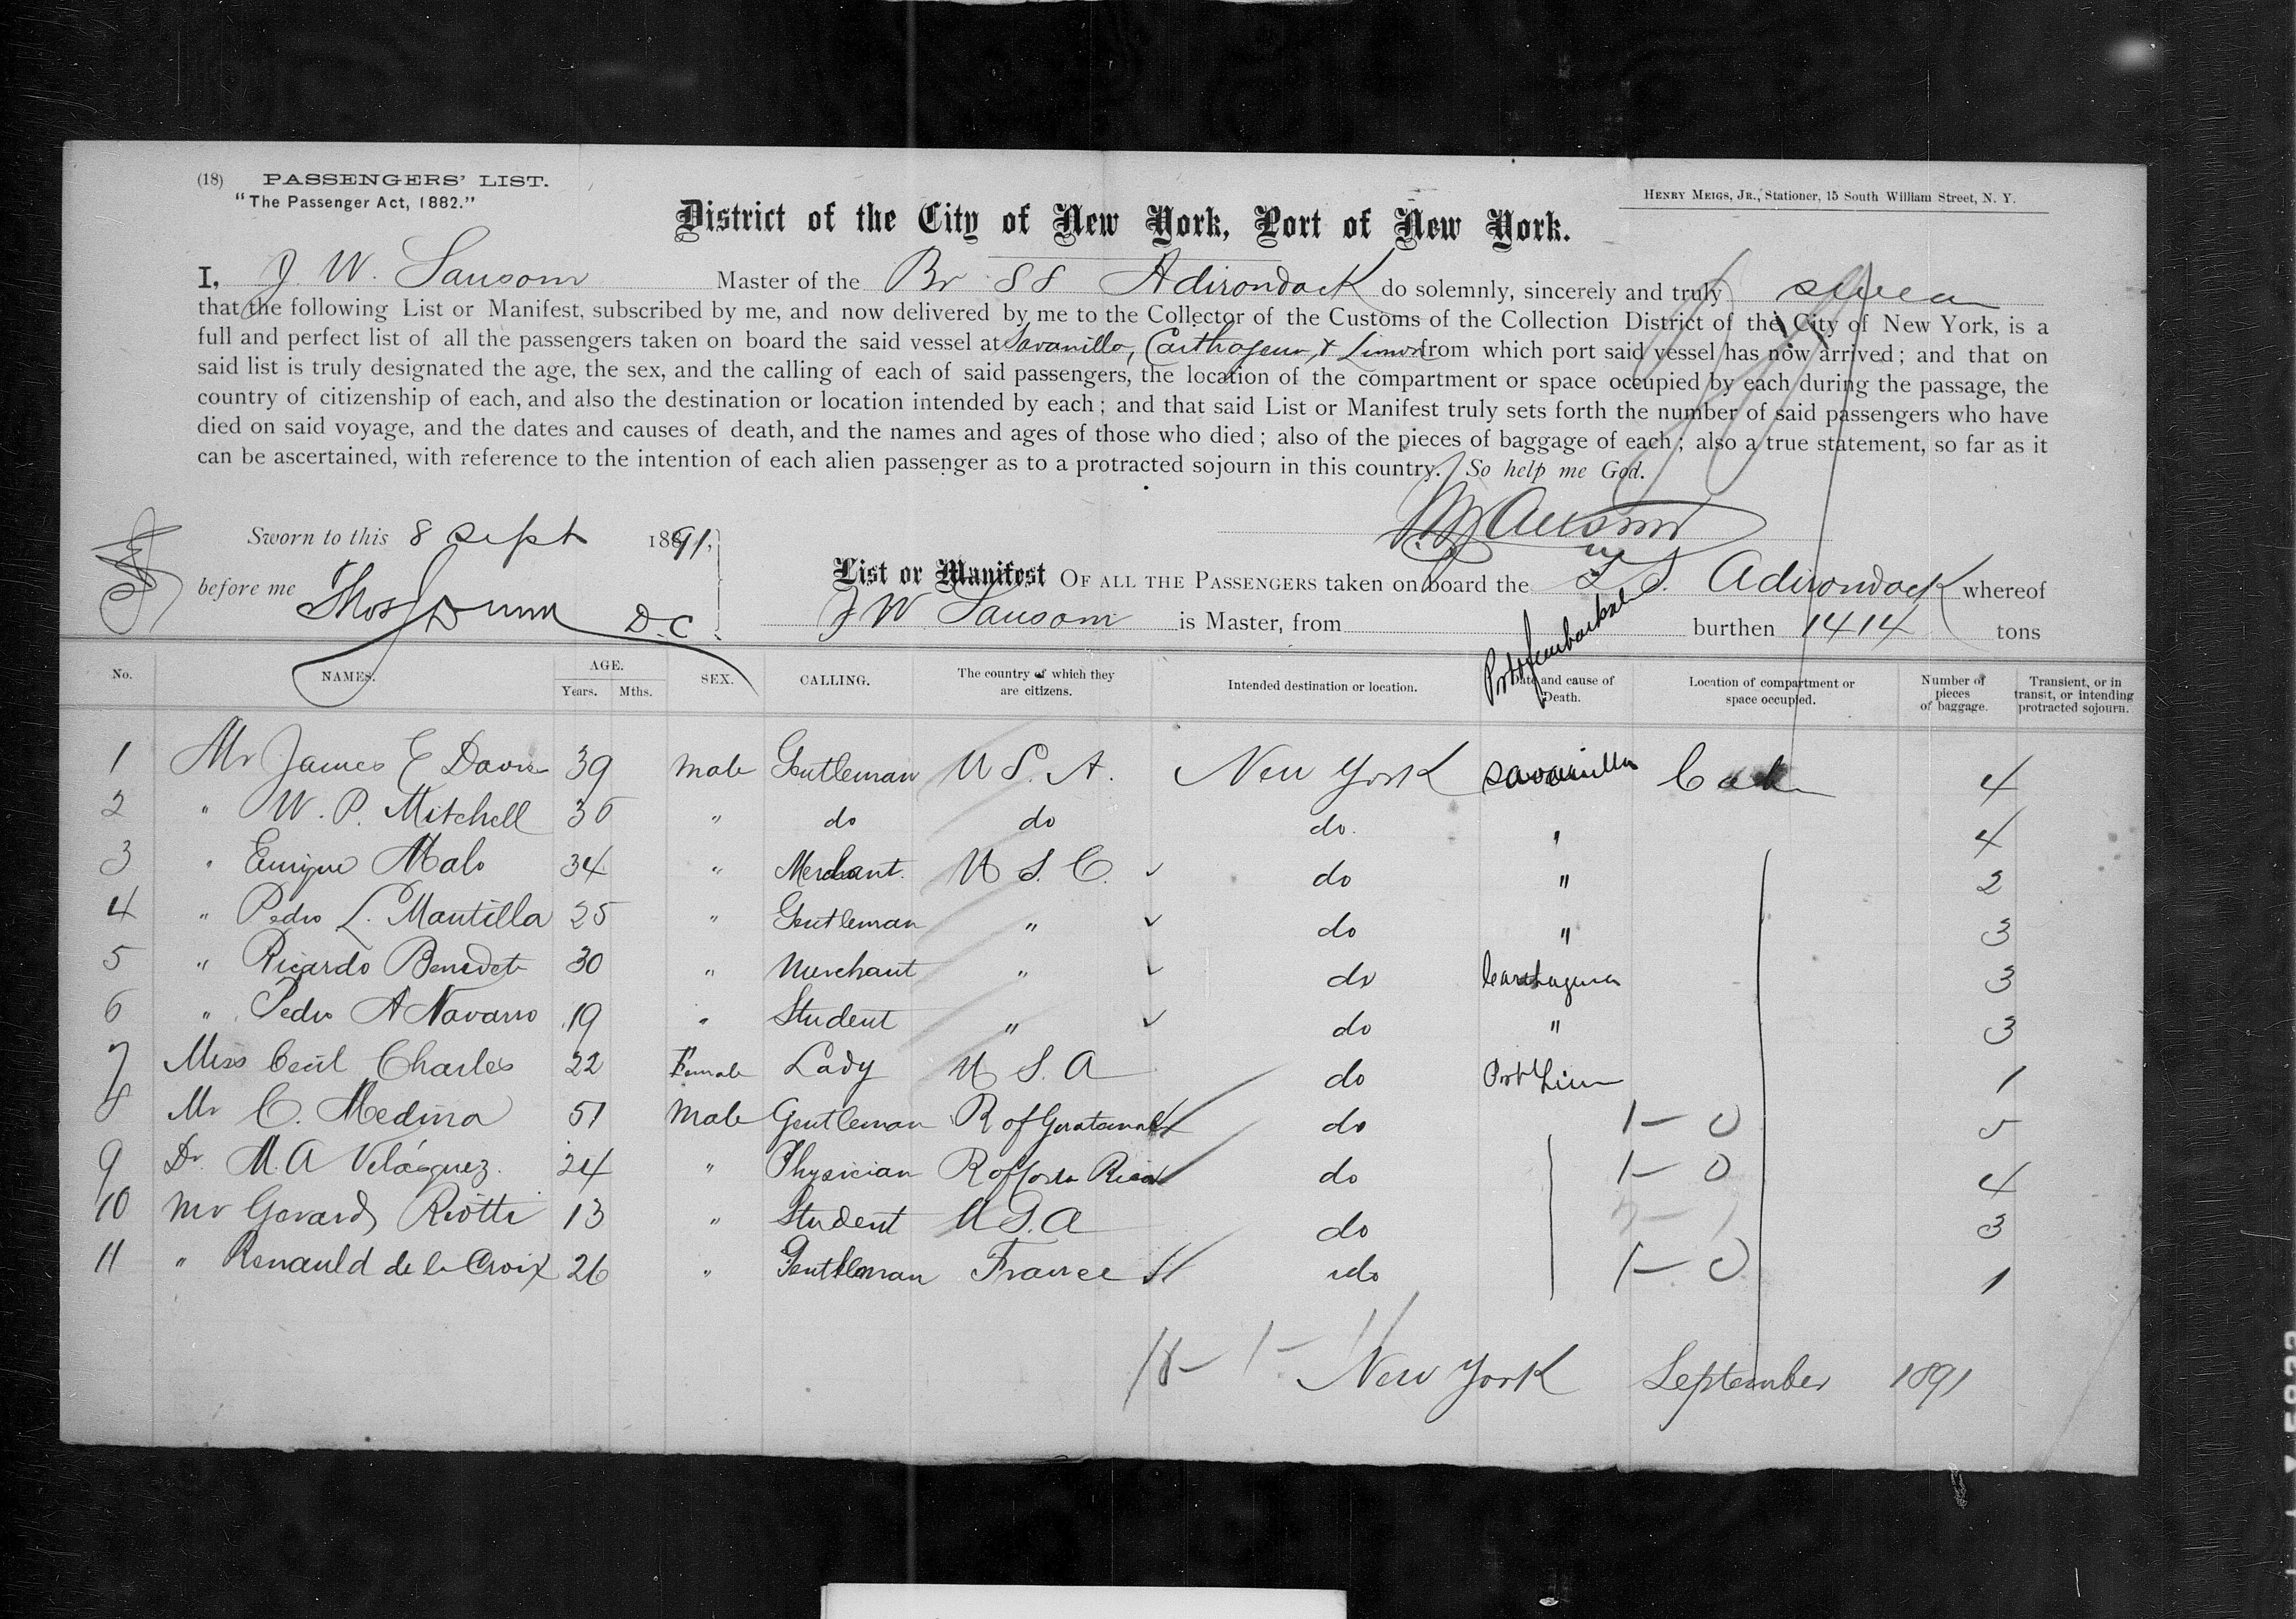 (18) PASSENGERS' LIST.
"The Passenger Act, 1882."
HENRY MEIGS, JR., Stationer, 15 South William Street, N. Y.
District of the City of New York, Port of New York.
I, J. W. Sansom Master of the Br SS Adirondack do solemnly, sincerely and truly swear
that the following List or Manifest, subscribed by me, and now delivered by me to the Collector of the Customs of the Collection District of the City of New York, is a
full and perfect list of all the passengers taken on board the said vessel at Savanilla, Carthagena, & Limon from which port said vessel has now arrived; and that on
said list is truly designated the age, the sex, and the calling of each of said passengers, the location of the compartment or space occupied by each during the passage, the
country of citizenship of each, and also the destination or location intended by each; and that said List or Manifest truly sets forth the number of said passengers who have
died on said voyage, and the dates and causes of death, and the names and ages of those who died; also of the pieces of baggage of each; also a true statement, so far as it
can be ascertained, with reference to the intention of each alien passenger as to a protracted sojourn in this country. So help me God.
J W Sansom
Sworn to this 8 Sept 1891,
before me Thos Dunn D.C.
List or Manifest OF ALL THE PASSENGERS taken on board the S.S. Adirondack whereof
J W Sansom is Master, from burthen 1414 tons
Port of embarkation
No. NAMES. AGE. Years. Mths. SEX. CALLING. The country of which they are citizens. Intended destination or location. Date and cause of Death. Location of compartment or space occupied. Number of pieces of baggage. Transient, or in transit, or intending protracted sojourn.
1 Mr James E Davis 39 Male Gentleman U S. A. New York Savanilla Cabin 4
2 " W. P. Mitchell 35 " do do do " 4
3 " Enrique Malo 34 " Merchant U S. C. do " 2
4 " Pedro L. Mantilla 25 " Gentleman " do " 3
5 " Ricardo Benedeti 30 " Merchant " do Carthagena 3
6 " Pedro A Navarro 19 " Student " do " 3
7 Miss Cecil Charles 22 Female Lady U S. A do Port Limon 1
8 Mr C. Medina 51 Male Gentleman R of Guatemala do 1 - 0 5
9 Dr. M. A Velásquez. 24 " Physician R of Costa Rica do 1 - 0 4
10 Mr Gerard Riotti 13 " Student U S. A do 3
11 " Renauld de la Croix 26 " Gentleman France do 1 - 0 1
New York September 1891